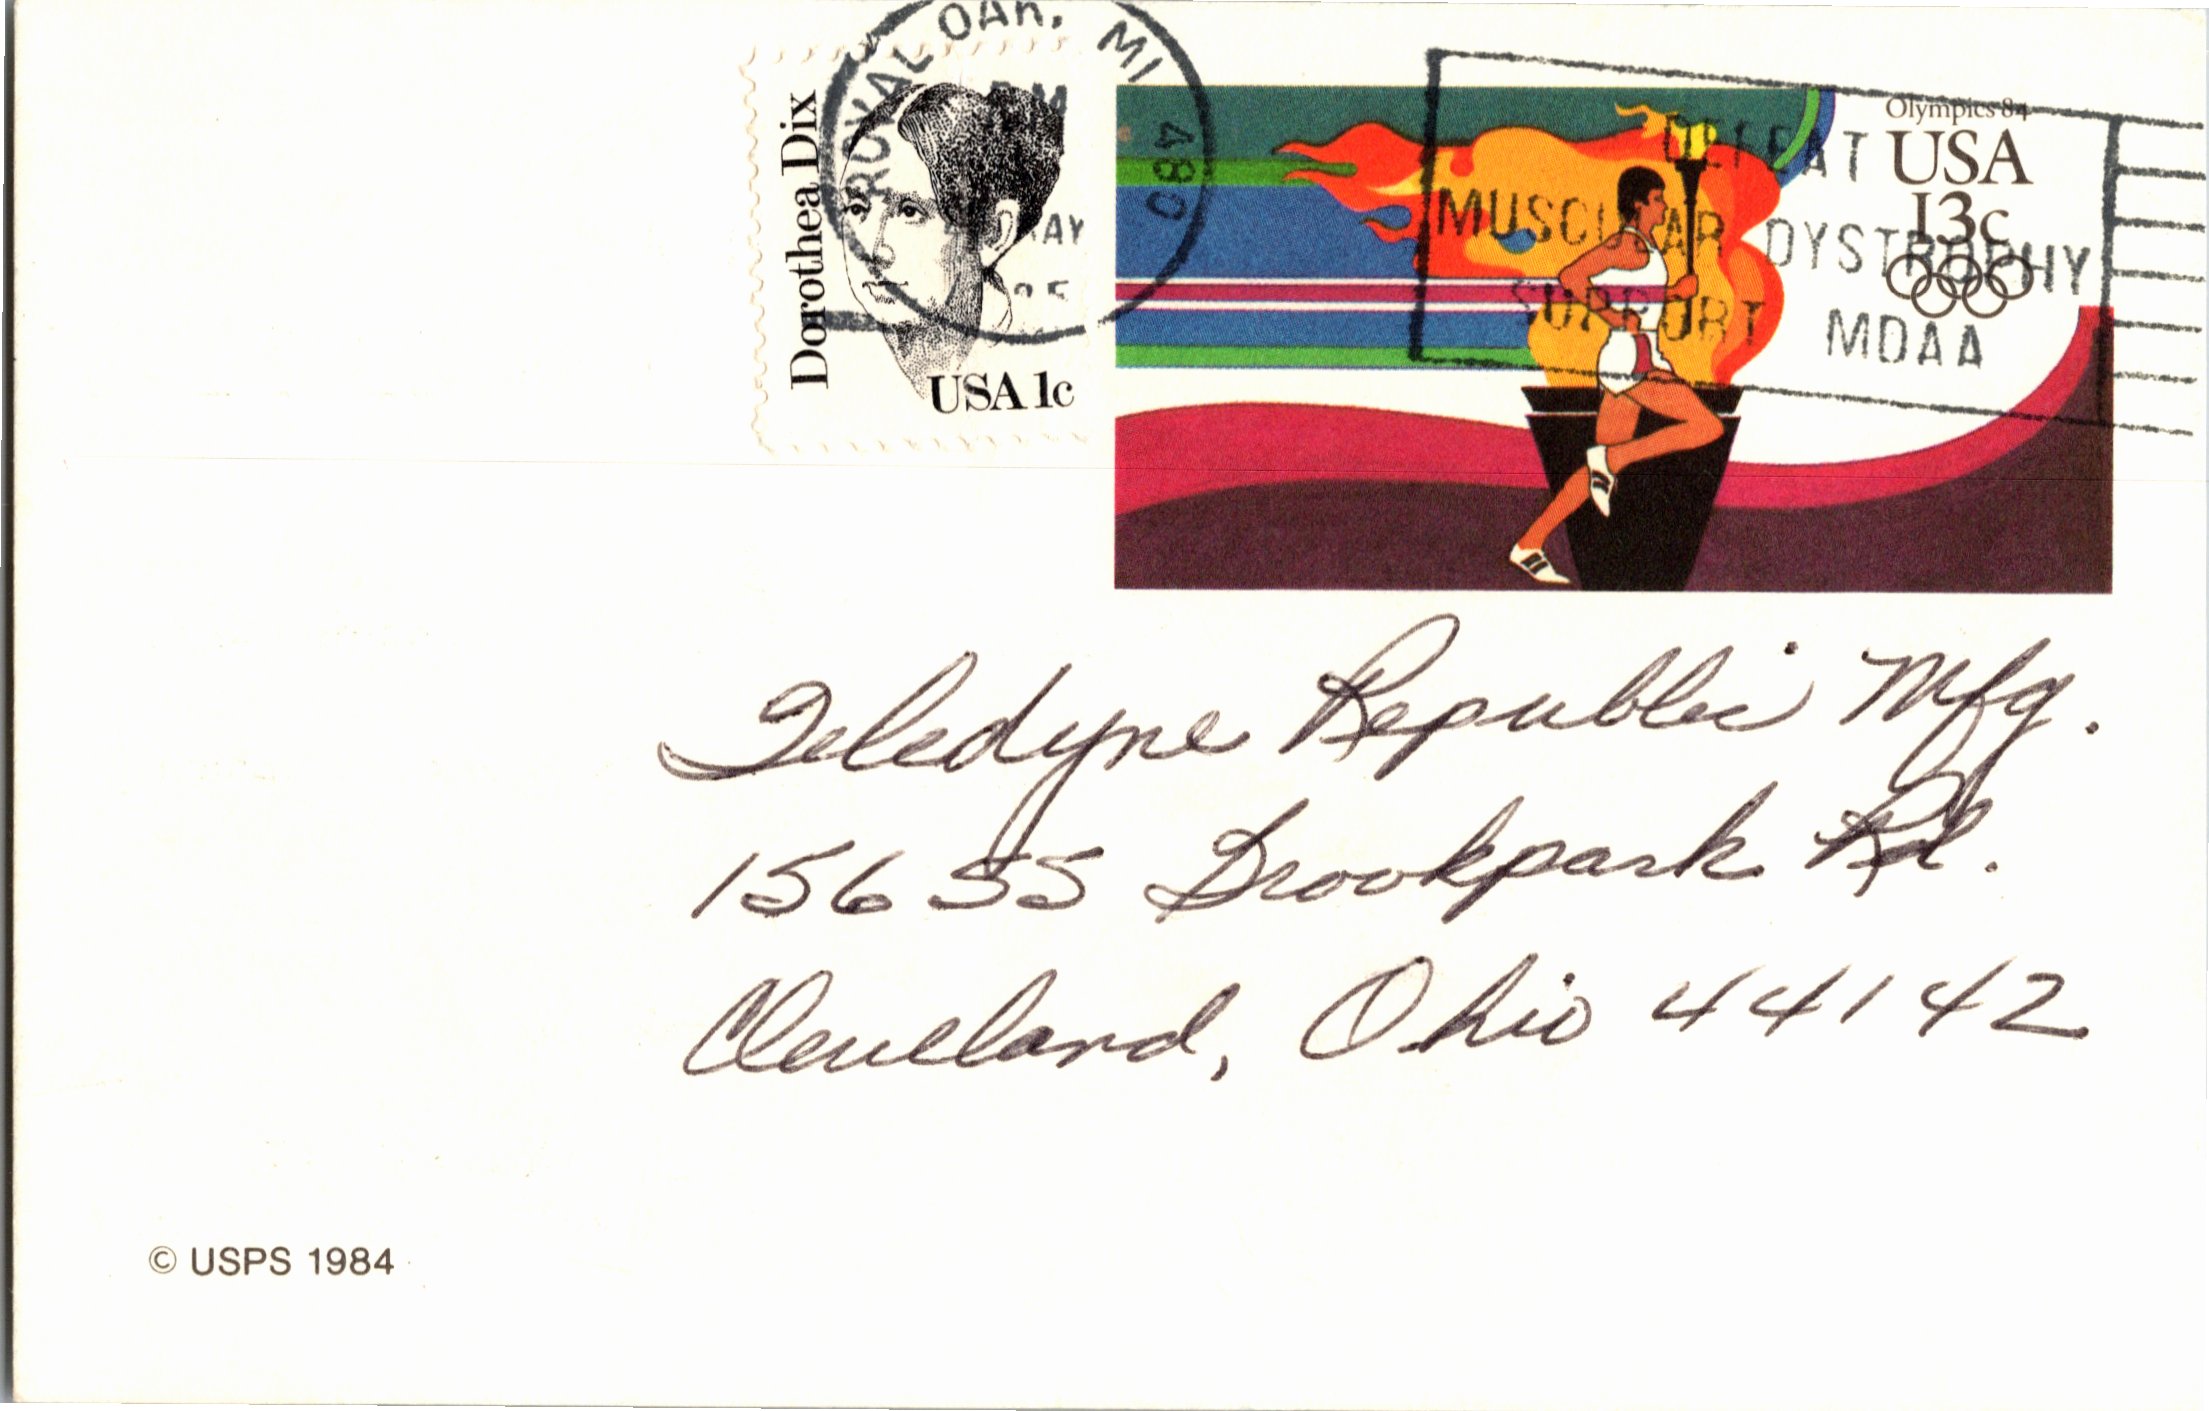 ROYAL OAK, MI
PM
MAY
1985
480
Dorothea Dix
USA 1c
Olympics 84
USA
13c
DEFEAT
MUSCULAR DYSTROPHY
SUPPORT MDAA
Teledyne Republic Mfg.
15655 Brookpark Rd.
Cleveland, Ohio 44142
© USPS 1984